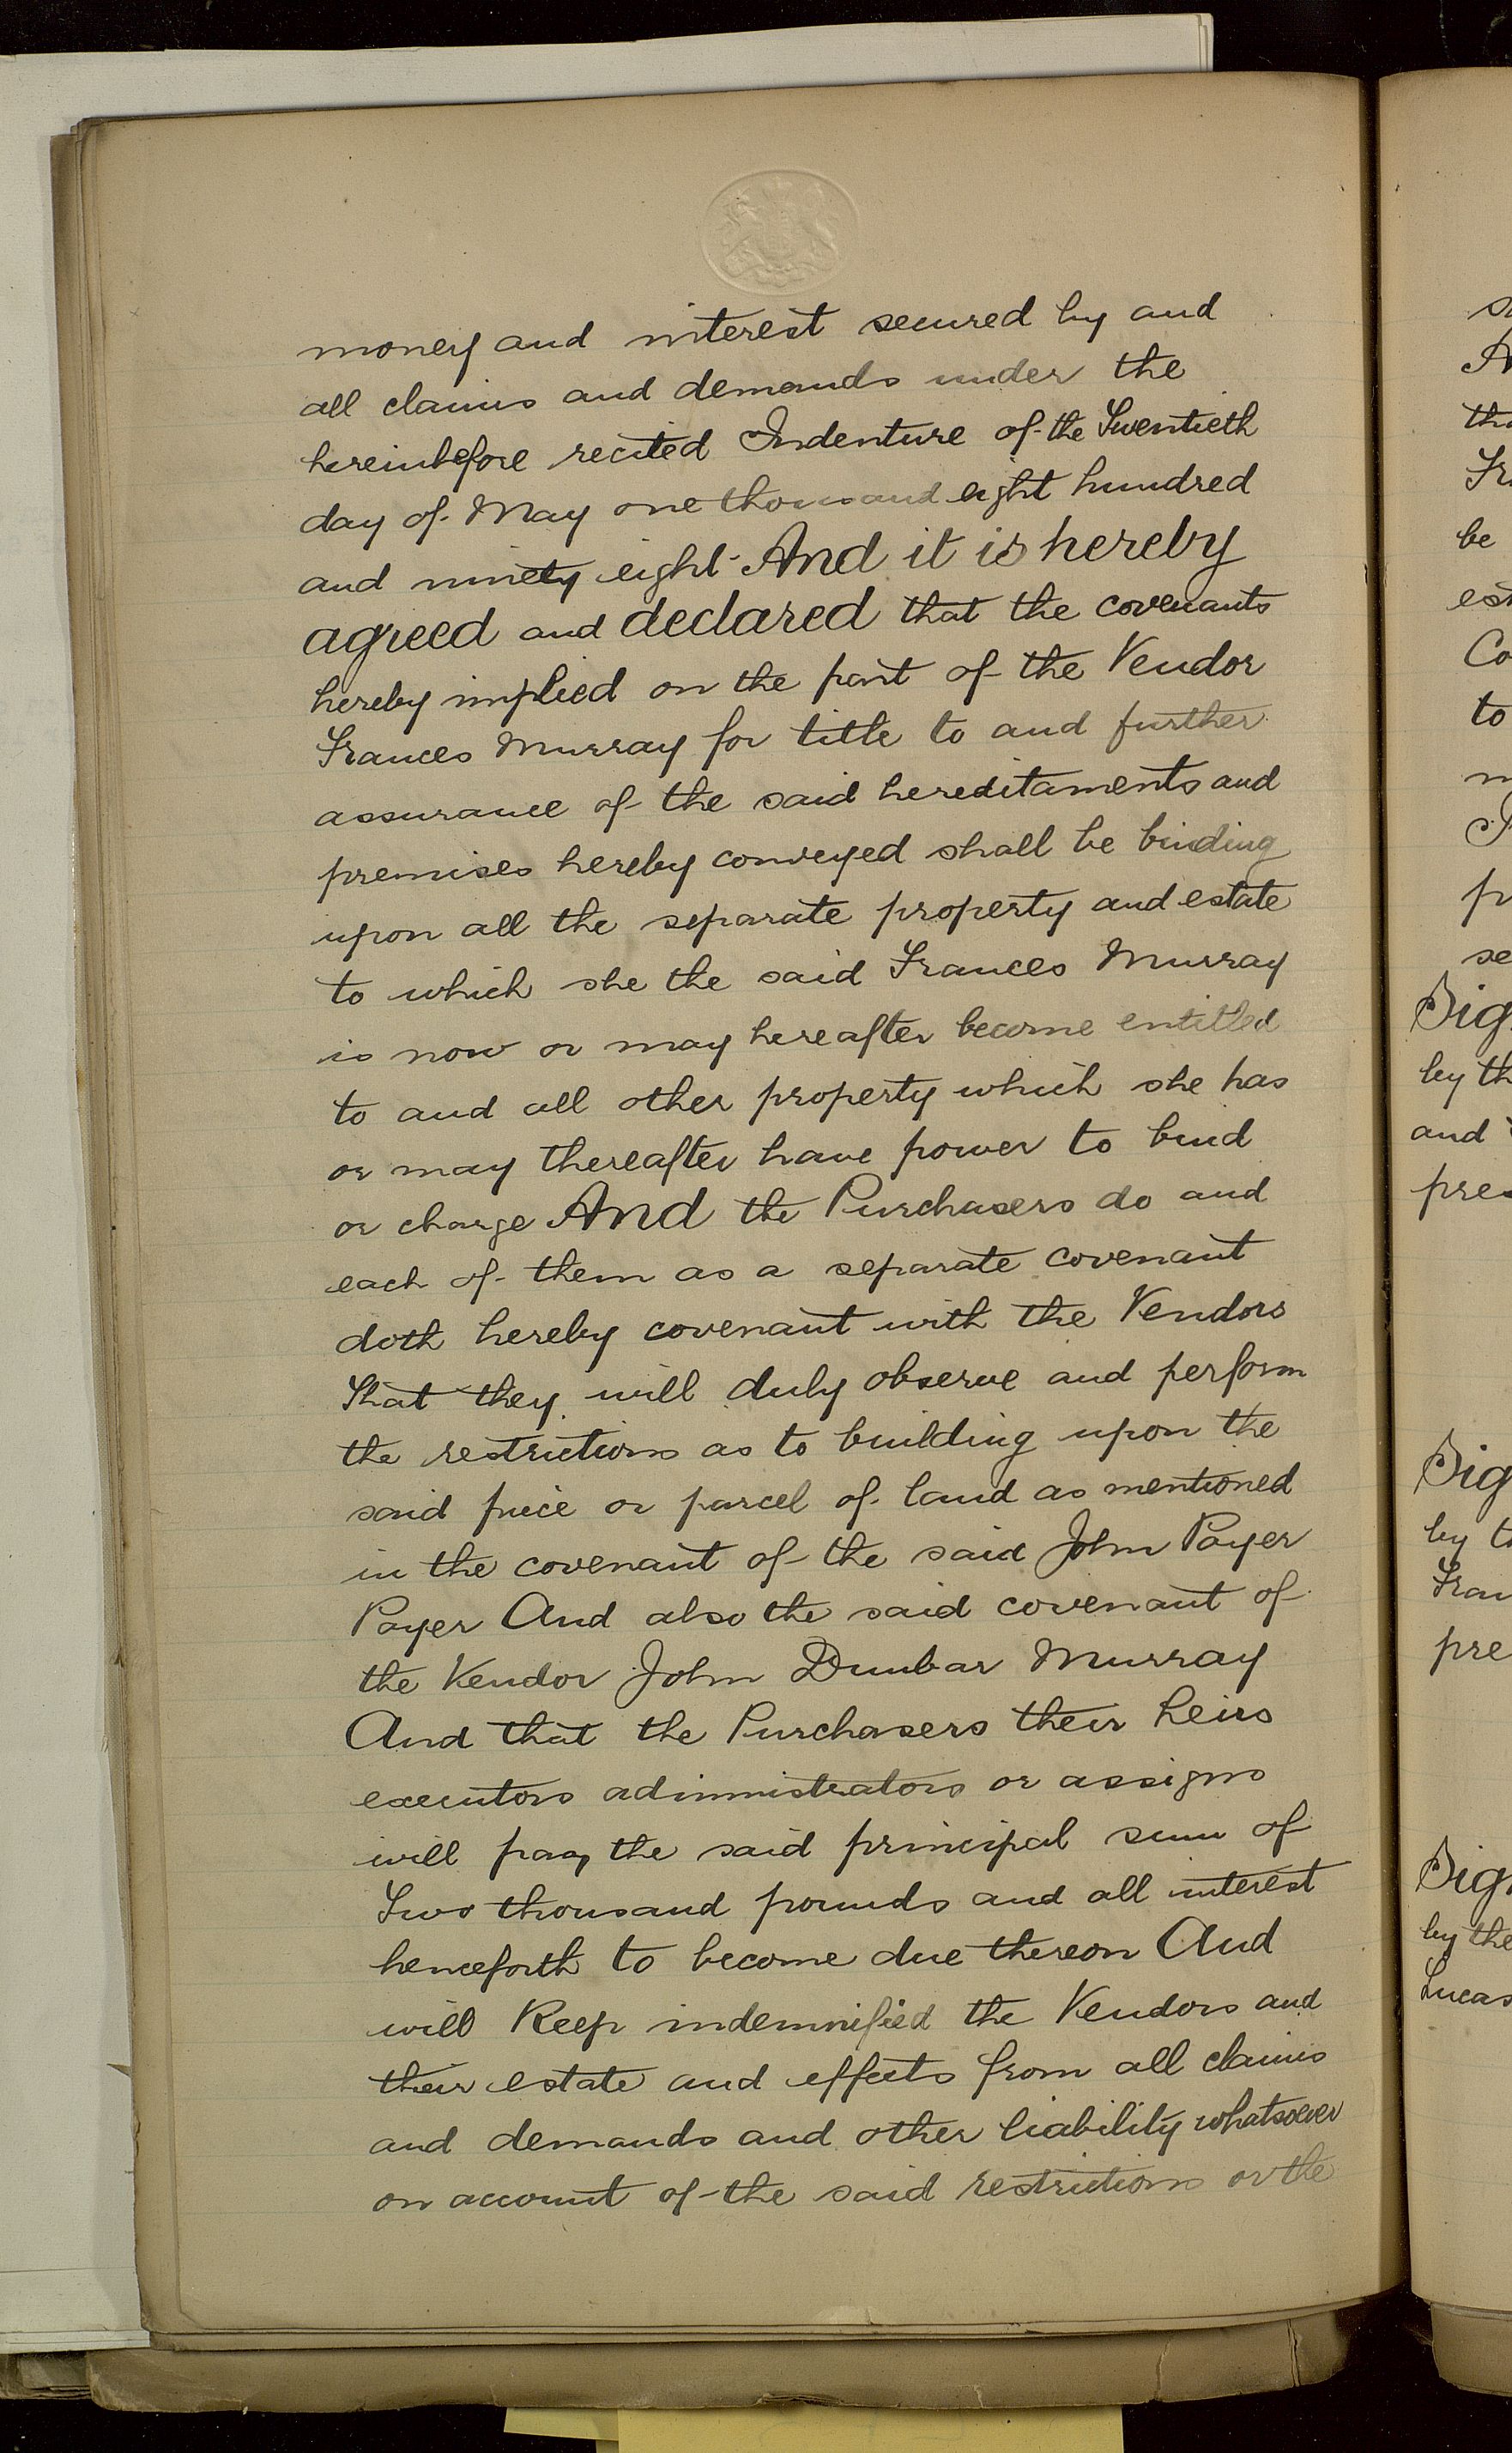 money and interest secured by and
all claims and demands under the
hereinbefore recited Indenture of the Twentieth
day of May one thousand eight hundred
and ninety eight And it is hereby
agreed and declared that the covenants
hereby implied on the part of the Vendor
Frances Murray for title to and further
assurance of the said hereditaments and
premises hereby conveyed shall be binding
upon all the separate property and estate
to which she the said Frances Murray
is now or may hereafter become entitled
to and all other property which she has
or may thereafter have power to bind
or charge And the Purchasers do and
each of them as a separate covenant
doth hereby covenant with the Vendors
That they will duly observe and perform
the restrictions as to building upon the
said piece or parcel of land as mentioned
in the covenant of the said John Payer
Payer And also the said covenant of
the Vendor John Dunbar Murray
And that the Purchasers their heirs
executors administrators or assigns
will pay the said principal sum of
Two thousand pounds and all interest
henceforth to become due thereon And
will Keep indemnified the Vendors and
their estate and effects from all claims
and demands and other liability whatsoever
on account of the said restrictions or the
Sig
by th
and
pres
Sig
by t
Fran
pre
Sig
by the
Lucas